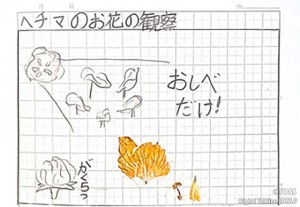 月 日
ヘチマのお花の観察
おしべ
だけ!
がくらっ
©TOSS